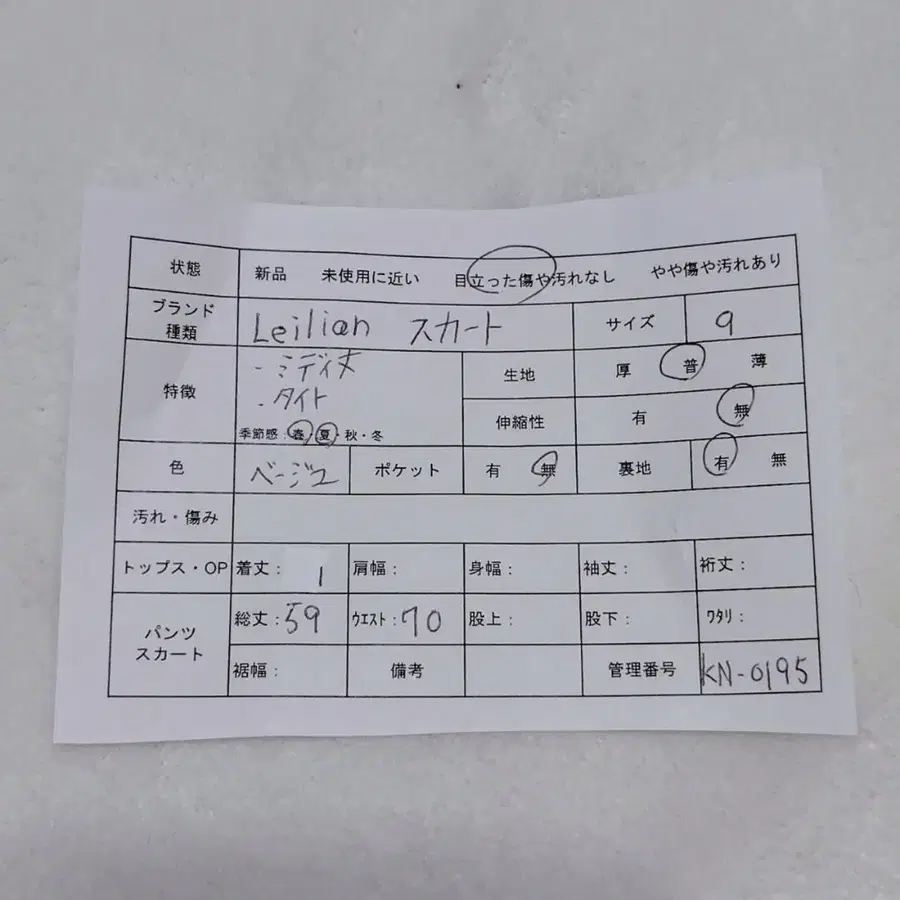 状態 新品 未使用に近い 目立った傷や汚れなし やや傷や汚れあり
ブランド
種類 Leilian スカート サイズ 9
特徴 ・ミディ丈 生地 厚 普 薄
・タイト 伸縮性 有 無
季節感:春・夏・秋・冬
色 ベージュ ポケット 有 無 裏地 有 無
汚れ・傷み
トップス・OP 着丈: 1 肩幅: 身幅: 袖丈: 裄丈:
パンツ
スカート 総丈:59 ウエスト:70 股上: 股下: ワタリ:
裾幅: 備考 管理番号 KN-0195